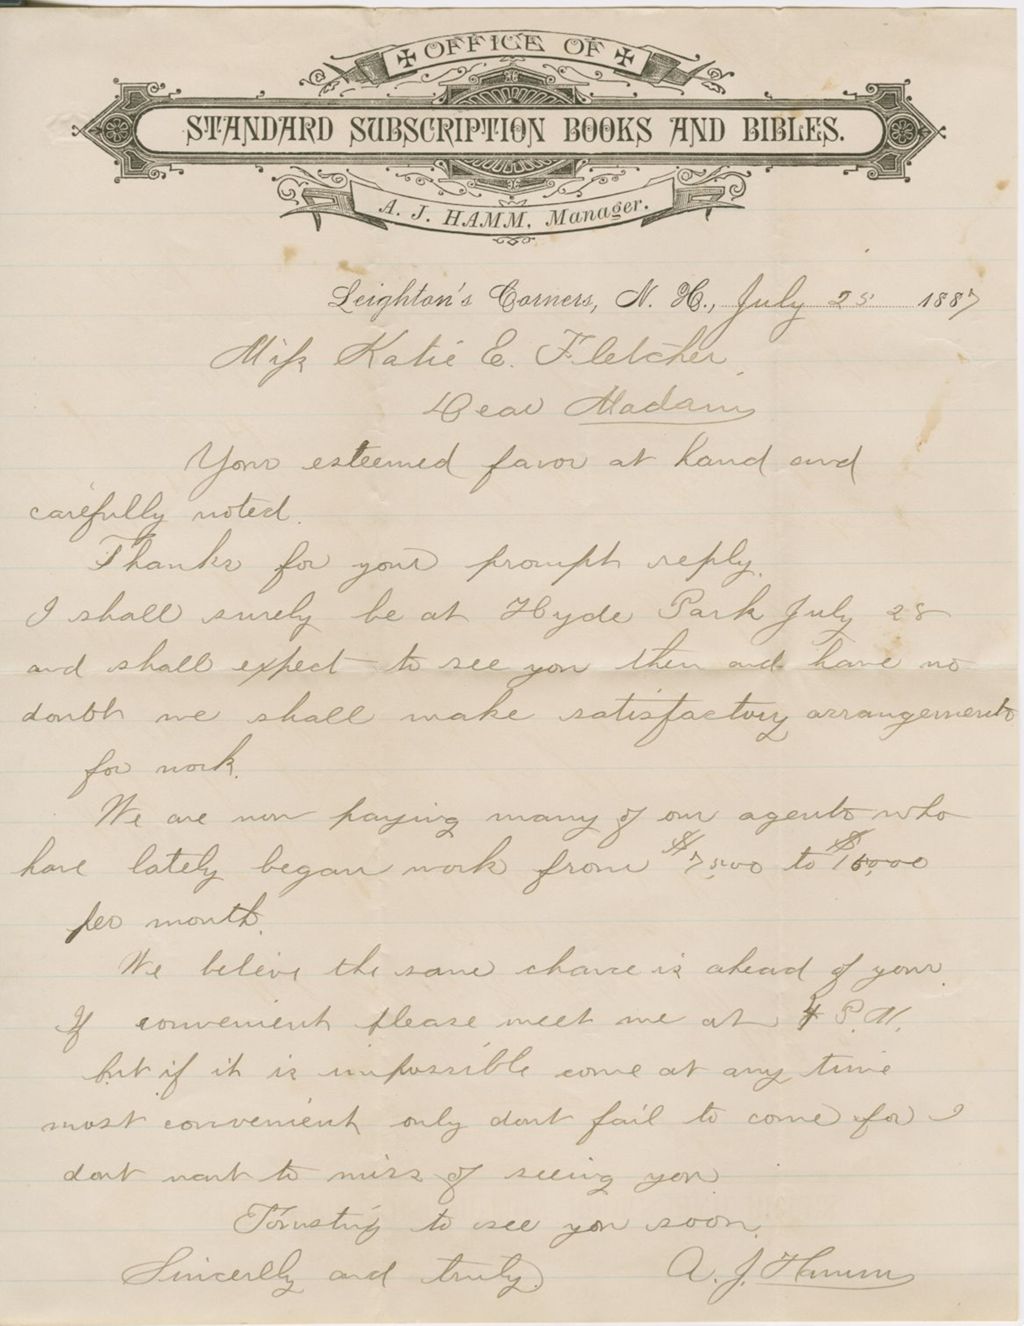 OFFICE OF
STANDARD SUBSCRIPTION BOOKS AND BIBLES.
A. J. HAMM, Manager.
Leighton's Corners, N. H., July 25 1887
Miss Katie E. Fletcher
Dear Madam
Your esteemed favor at hand and
carefully noted.
Thanks for your prompt reply.
I shall surely be at Hyde Park July 28
and shall expect to see you then and have no
doubt we shall make satisfactory arrangements
for work.
We are now paying many of our agents who
have lately began work from $75.00 to $150.00
per month.
We believe the same chance is ahead of your
If convenient please meet me at 4 P.M.
but if it is impossible come at any time
most convenient only dont fail to come for I
dont want to miss of seeing you
Trusting to see you soon.
Sincerelly and truly
A. J. Hamm